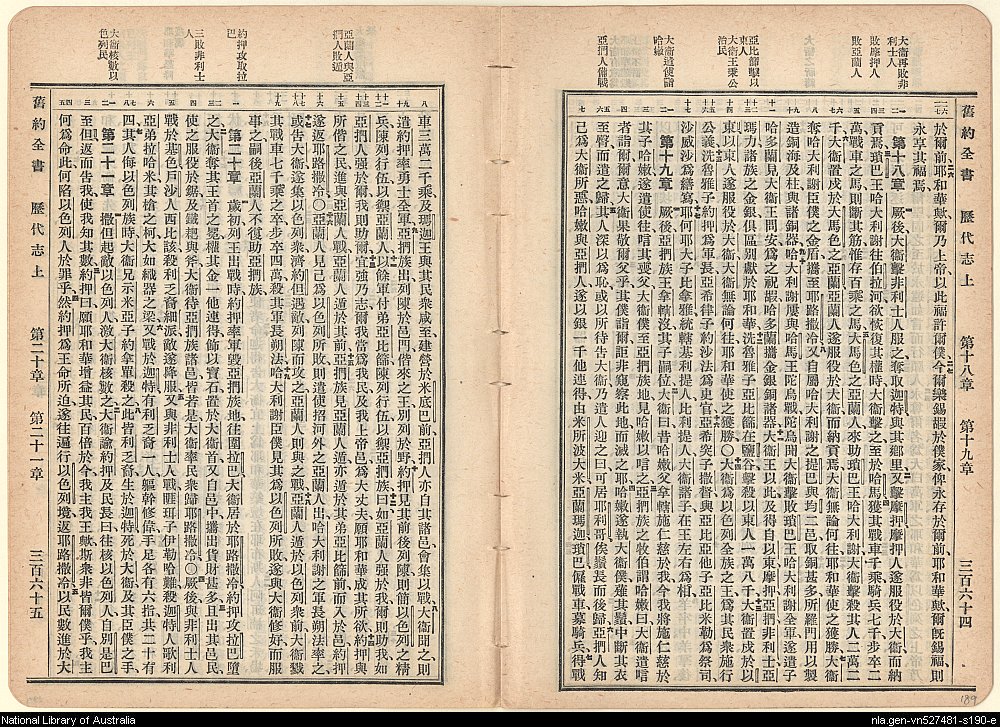 舊約全書 歷代志上 第十八章 第十九章 三百六十四
大衛再敗非利士人
敗摩押人
敗亞蘭人
亞比篩擊以東人
大衛王秉公治民
大衛遣使唁哈嫩
亞捫人備戰
於爾前耶和華歟爾乃上帝以此福許爾僕今爾樂錫嘏於僕家俾永存於爾前耶和華歟爾旣錫福則
永享其福焉
第十八章 厥後大衛擊非利士人服之奪取迦特與其鄉里又擊摩押摩押人遂服役於大衛而納
貢焉瑣巴王哈大利謝往伯拉河欲恢復其權時大衛擊之至於哈馬獲其戰車千乘騎兵七千步卒二
萬戰車之馬則斷其筋惟存百乘之馬大馬色之亞蘭人來助瑣巴王哈大利謝大衛擊殺其人二萬二
千大衛置戍於大馬色之亞蘭亞蘭人遂服役於大衛而納貢焉大衛無論何往耶和華使之獲勝大衛
奪哈大利謝臣僕之金盾攜至耶路撒冷又自屬哈大利謝之提巴與均二邑取銅甚多所羅門用以製
造銅海及柱與諸銅器哈大利謝屢與哈馬王陀烏戰陀烏聞大衛擊敗瑣巴王哈大利謝全軍遂遣子
哈多蘭見大衛王問安爲之祝嘏哈多蘭攜金銀銅諸器大衛王以此及得自以東摩押亞捫非利士亞
瑪力諸族之金銀俱區別獻於耶和華洗魯雅子亞比篩在鹽谷擊殺以東人一萬八千大衛置戍於以
東以東人遂服役於大衛大衛無論何往耶和華使之獲勝〇大衛爲以色列全族之王爲其民衆施行
公義洗魯雅子約押爲軍長亞希律子約沙法爲史官亞希突子撒督與亞比亞他子亞比米勒爲祭司
沙威沙爲繕寫耶何耶大子比拿雅統轄基利提人比利提人大衛諸子在王左右爲相
第十九章 厥後亞捫族王拿轄沒其子嗣位大衛曰昔哈嫩父拿轄施仁慈於我今我將施仁慈於
其子哈嫩遂遣使往唁其喪父大衛僕至亞捫族地見哈嫩以唁之亞捫族之牧伯謂哈嫩曰大衛遣唁
者詣爾爾意大衛果敬爾父乎其僕詣爾詎非窺察此地而滅之耶哈嫩遂執大衛僕薙其鬚中斷其衣
至臀而遣之歸其人深以爲恥或以所待告大衛乃遣人迎之曰可居耶利哥俟鬚長而後歸亞捫人知
己爲大衛所惡哈嫩與亞捫人遂以銀一千他連得由米所波大米亞蘭瑪迦瑣巴僱戰車募騎兵得戰
亞蘭人與亞捫人敗遁
約押攻取拉巴
三敗非利士人
大衛核數以色列民
車三萬二千乘及瑪迦王與其民衆咸至建營於米底巴前亞捫人亦自其諸邑會集以戰大衛聞之則
遣約押率勇士全軍亞捫族出列陳於邑門偕來之王別列於野約押見其前後列陳則簡以色列之精
兵陳列行伍以禦亞蘭人以餘軍付弟亞比篩陳列行伍以禦亞捫族曰如亞蘭人强於我爾則助我如
亞捫人强於爾我則助爾宜强乃志爾我當爲我民及我上帝邑爲大丈夫願耶和華成其所欲約押與
所偕之民進與亞蘭人戰亞蘭人遁於其前亞捫族見亞蘭人遁亦遁於其弟亞比篩前而入於邑約押
遂返耶路撒冷〇亞蘭人見己爲以色列所敗則遣使招河外之亞蘭人出哈大利謝之軍長朔法率之
或告大衛遂集以色列衆濟約但遇敵列陳而攻之亞蘭人則與之戰亞蘭人遁於以色列衆前大衛戮
其戰車七千乘之卒四萬步卒殺其軍長朔法哈大利謝臣僕見其爲以色列所敗遂與大衛修好而服
事之嗣後亞蘭人不復助亞捫族
第二十章 歲初列王出戰時約押率軍毀亞捫族地往圍拉巴大衛居於耶路撒冷約押攻拉巴墮
之大衛奪其王首之冕權其金一他連得飾以寶石置於大衛首又自邑中攜出貨財甚多且出其邑民
使之服役於鋸及鐵耙與斧大衛待亞捫族諸邑皆若是大衛率民衆歸耶路撒冷〇厥後與非利士人
戰於基色戶沙人西比該殺利乏裔細派敵遂降服又與非利士人戰睚珥子伊勒哈難殺迦特人歌利
亞弟拉哈米其槍之柯大如織器之梁又戰於迦特有利乏裔一人軀幹修偉手足各有六指共二十有
四其人侮以色列族時大衛兄示米亞子約拿單殺之此皆利乏裔生於迦特死於大衛及其臣僕之手
第二十一章 撒但起敵以色列人激大衛核數之大衛諭約押及民長曰往核以色列人自別是巴
至但返而告我使我知其數約押曰願耶和華增益其民百倍於今我主我王歟斯衆非皆爾僕乎我主
何爲命此何陷以色列人於罪乎然約押爲王命所迫遂往遍行以色列境返耶路撒冷以民數進於大
舊約全書 歷代志上 第二十章 第二十一章 三百六十五
189
National Library of Australia
nla.gen-vn527481-s190-e